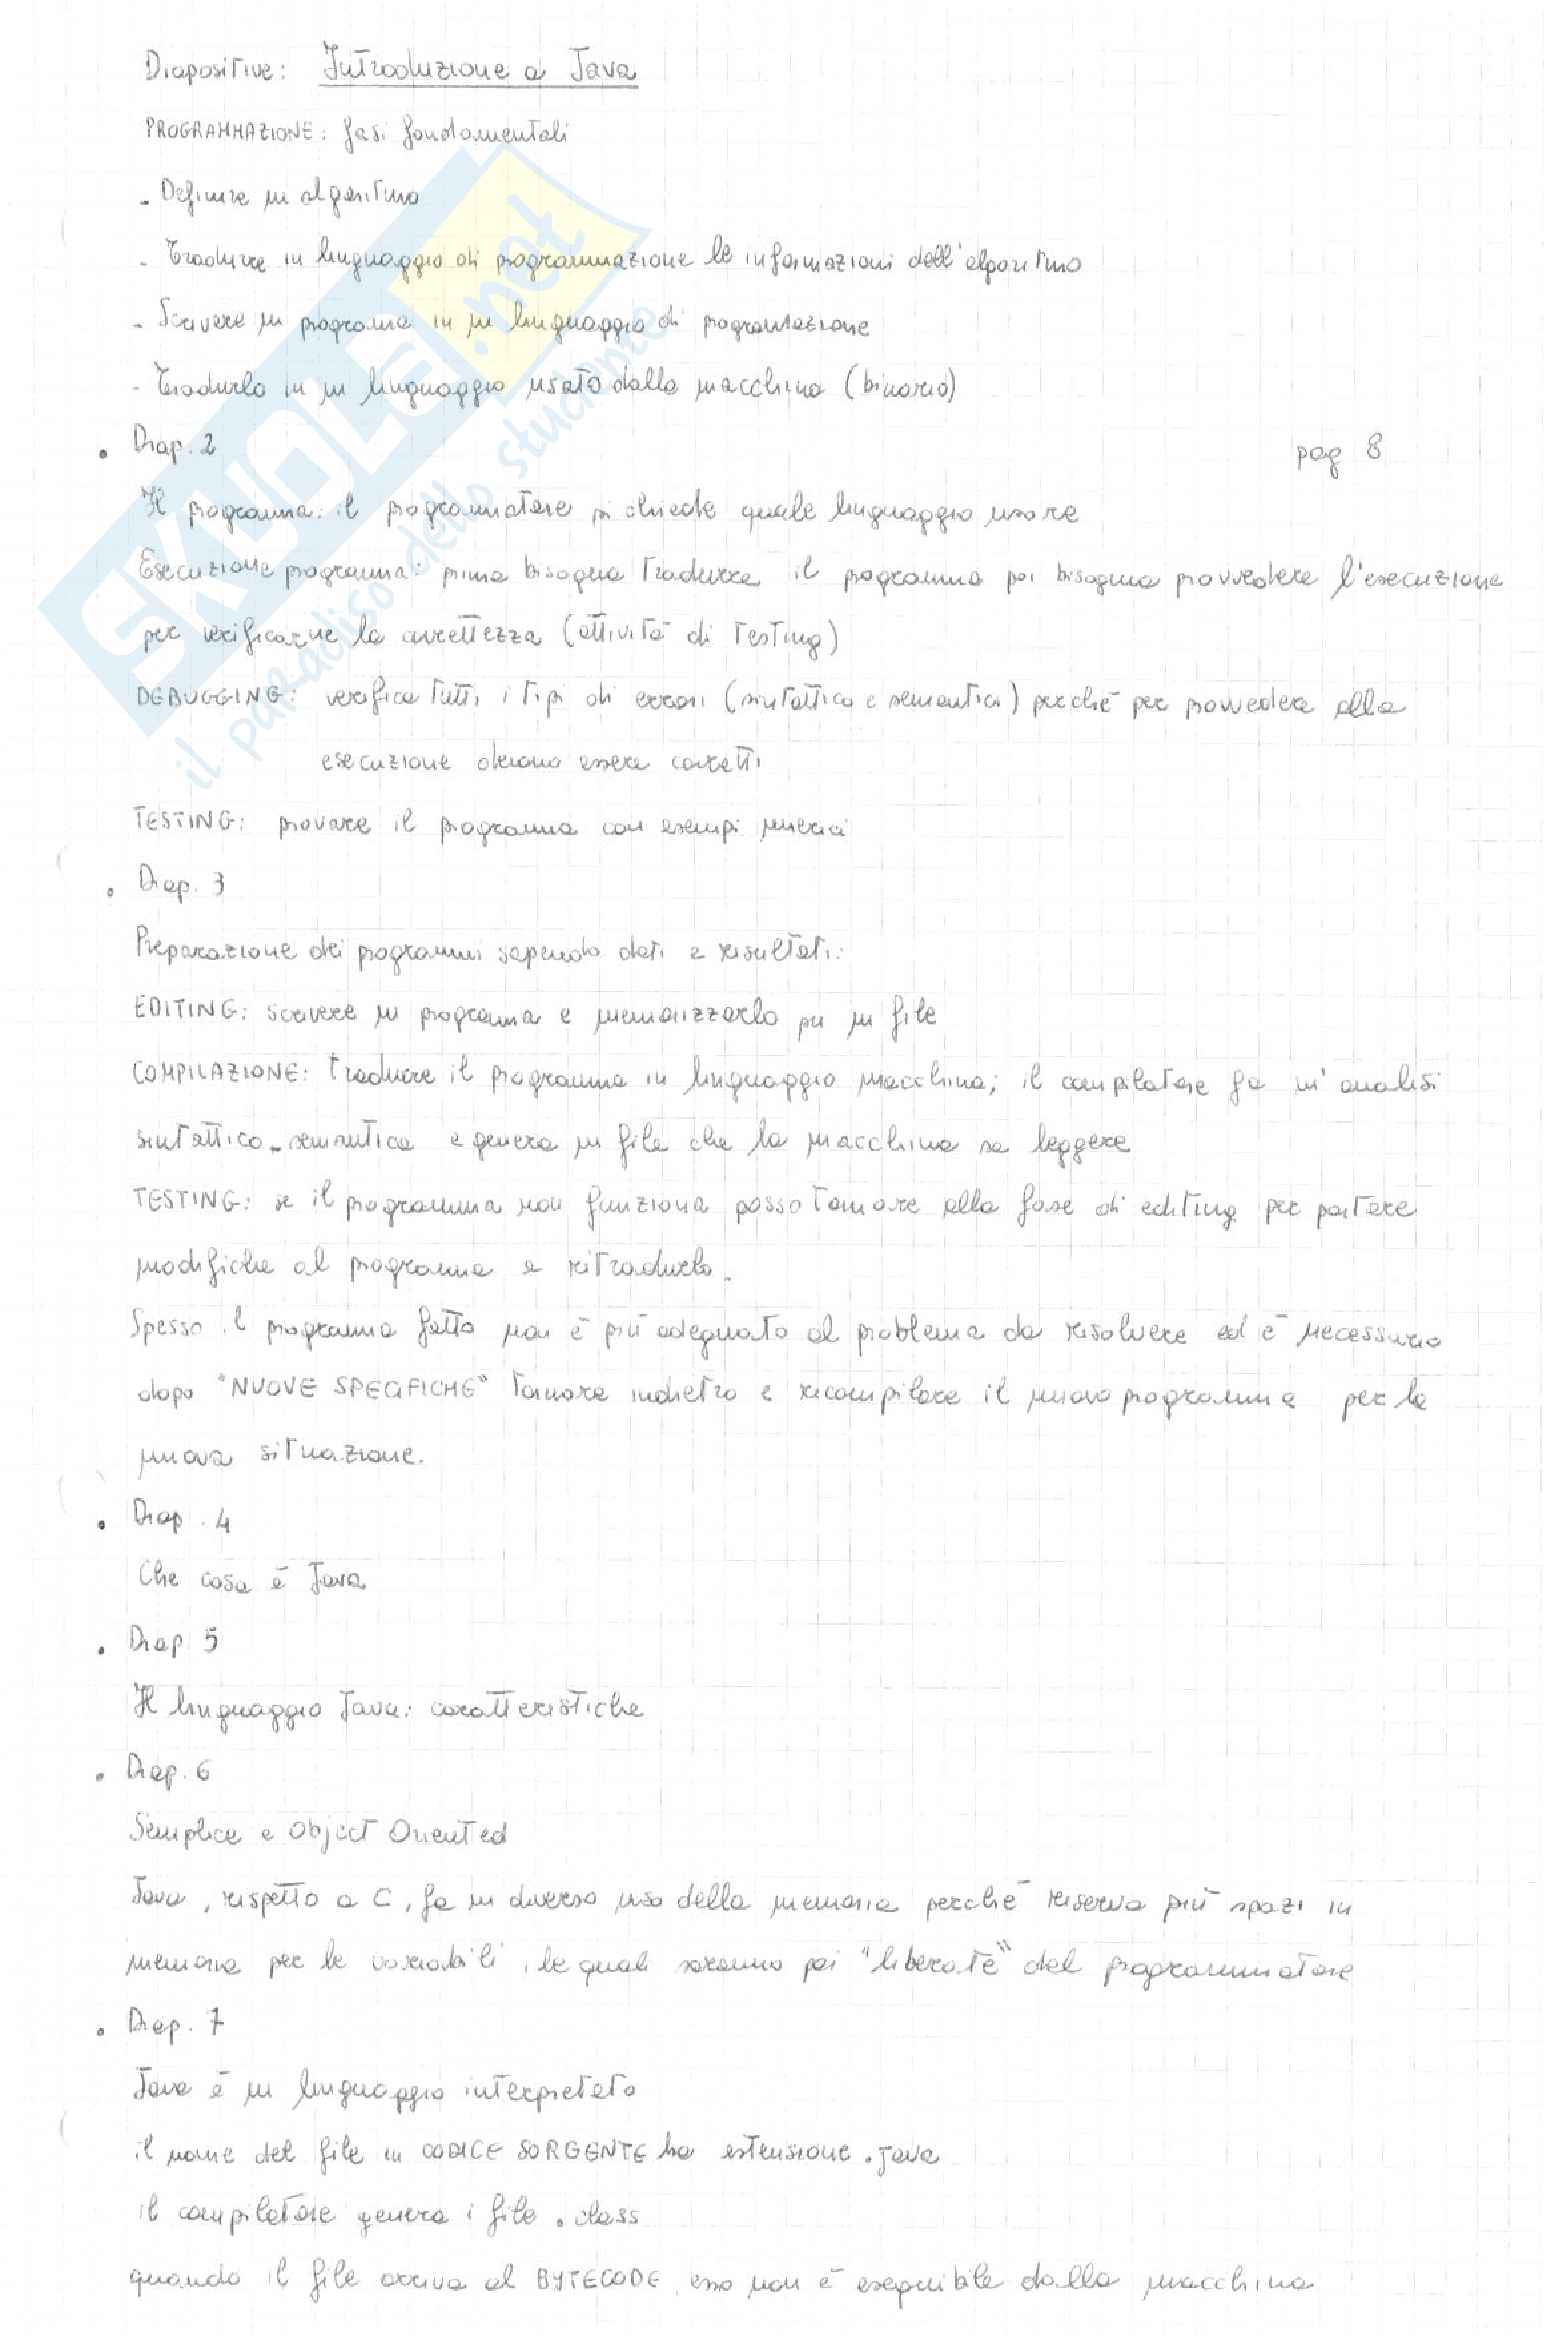 Diapositive: Introduzione a Java
PROGRAMMAZIONE: fasi fondamentali
- Definire un algoritmo
- Tradurre in linguaggio di programmazione le informazioni dell'algoritmo
- Scrivere un programma in un linguaggio di programmazione
- Tradurlo in un linguaggio usato dalla macchina (binario)
• Diap. 2 pag 8
Il programma: il programmatore si chiede quale linguaggio usare
Esecuzione programma: prima bisogna tradurre il programma poi bisogna provvedere l'esecuzione
per verificarne la correttezza (attività di testing)
DEBUGGING: verifica tutti i tipi di errori (sintattico e semantici) perché per provvedere alla
esecuzione devono essere corretti
TESTING: provare il programma con esempi numerici
• Diap. 3
Preparazione dei programmi sapendo dati e risultati:
EDITING: scrivere un programma e memorizzarlo su un file
COMPILAZIONE: tradurre il programma in linguaggio macchina; il compilatore fa un'analisi
sintattico-semantica e genera un file che la macchina sa leggere
TESTING: se il programma non funziona posso tornare alla fase di editing per portare
modifiche al programma e ritradurlo.
Spesso il programma fatto non è più adeguato al problema da risolvere ed è necessario
dopo "NUOVE SPECIFICHE" tornare indietro e ricompilare il nuovo programma per la
nuova situazione.
• Diap. 4
Che cosa è Java
• Diap. 5
Il linguaggio Java: caratteristiche
• Diap. 6
Semplice e Object Oriented
Java, rispetto a C, fa un diverso uso della memoria perché riserva più spazi in
memoria per le variabili, le quali saranno poi "liberate" dal programmatore
• Diap. 7
Java è un linguaggio interpretato
il nome del file in CODICE SORGENTE ha estensione .java
il compilatore genera i file .class
quando il file arriva al BYTECODE, esso non è eseguibile dalla macchina
SKUOLA.net
il paradiso dello studente